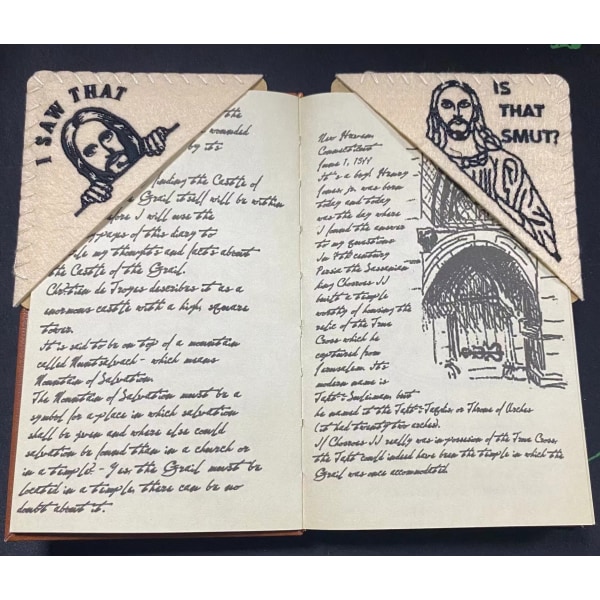 I SAW THAT
IS
THAT
SMUT?
the
wounded
by it's
finding the Castle of
Grail itself will be within
I will use the
pages of this diary to
my thoughts and facts about
the Castle of the Grail.
Chrétien de Troyes describes it as a
enormous castle with a high, square
tower.
It is said to be on top of a mountain
called Muntsalvach - which means
Mountain of Salvation.
The Mountain of Salvation must be a
symbol for a place in which salvation
shall be given and where else could
salvation be found then in a church or
in a temple? - Yes, the Grail must be
located in a temple, there can be no
doubt about it.
New Haven
Connecticut
June 1, 1911
It's a boy! Henry
Jones jr. was born
today and today
was the day where
I found the answer
to my questions
In 7th century
Persia the Sassanian
king Chosroes II
built a temple
worthy of housing the
relic of the True
Cross which he
captured from
Jerusalem. It's
modern name is
Takt-i-Suleiman but
he named it the Takt-i-Taqdis or Throne of Arches
(it had twenty two arches).
If Chosroes II really was in possession of the True Cross,
the Takt could indeed have been the temple in which the
Grail was once accommodated